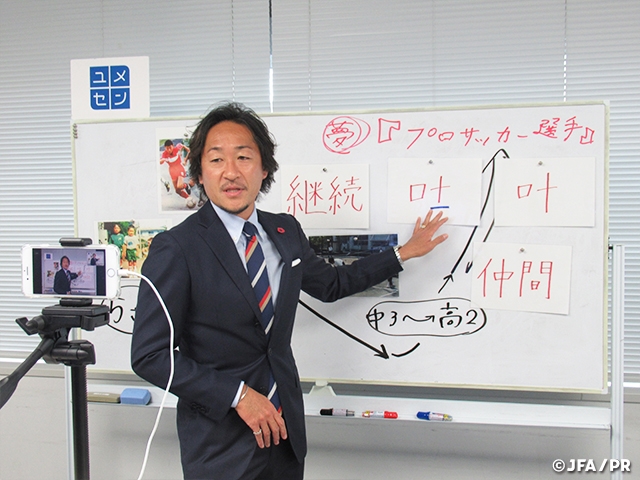 ユメ
セン
夢 『プロサッカー選手』
継続
叶
叶
仲間
中3〜→高2
©JFA/PR